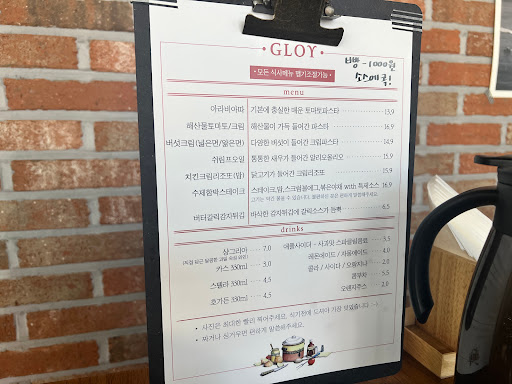 GLOY
빠빵 -1000원
소스메콕!
• 모든 식사메뉴 맵기조절가능 •
menu
아라비아따 기본에 충실한 매운 토마토파스타 13.9
해산물토마토/크림 해산물이 가득 들어간 파스타 16.9
버섯크림(넓은면/얇은면) 다양한 버섯이 들어간 크림파스타 14.9
쉬림프오일 통통한 새우가 들어간 알리오올리오 15.9
치킨크림리조또(밥) 닭고기가 들어간 크림리조또 15.9
수제함박스테이크 스테이크,밥,스크램블에그,볶은야채 with 특제소스 16.9
버터갈릭감자튀김 바삭한 감자튀김에 갈릭소스가 듬뿍 6.5
drinks
샹그리아 7.0
카스 330ml 3.0
스텔라 330ml 4.5
호가든 330ml 4.5
애플사이더 - 사과맛 스파클링음료 3.5
레몬에이드 / 자몽에이드 4.0
콜라 / 사이다 / 오렌지나 2.0
콤부차 5.5
오렌지주스 2.0
• 사진은 최대한 빨리 찍어주세요. 식기전에 드셔야 가장 맛있습니다 :-)
• 짜거나 싱거우면 편하게 말씀해주세요.